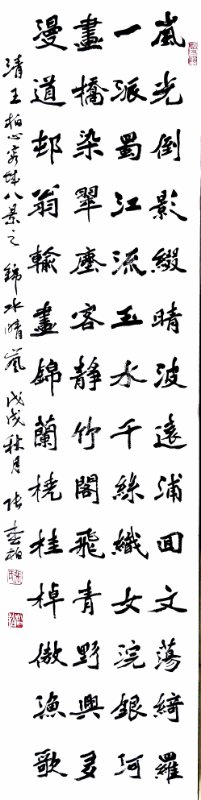 嵐光倒影綴晴波遠浦回文蕩綺羅
一派蜀江流玉水千絲織女浣銀河
畫橋染翠塵客靜竹閣飛青野興多
漫道邨翁輸畫錦蘭桡桂棹傲漁歌
清王柏心容城八景之錦水晴嵐 戊戌秋月 张柏